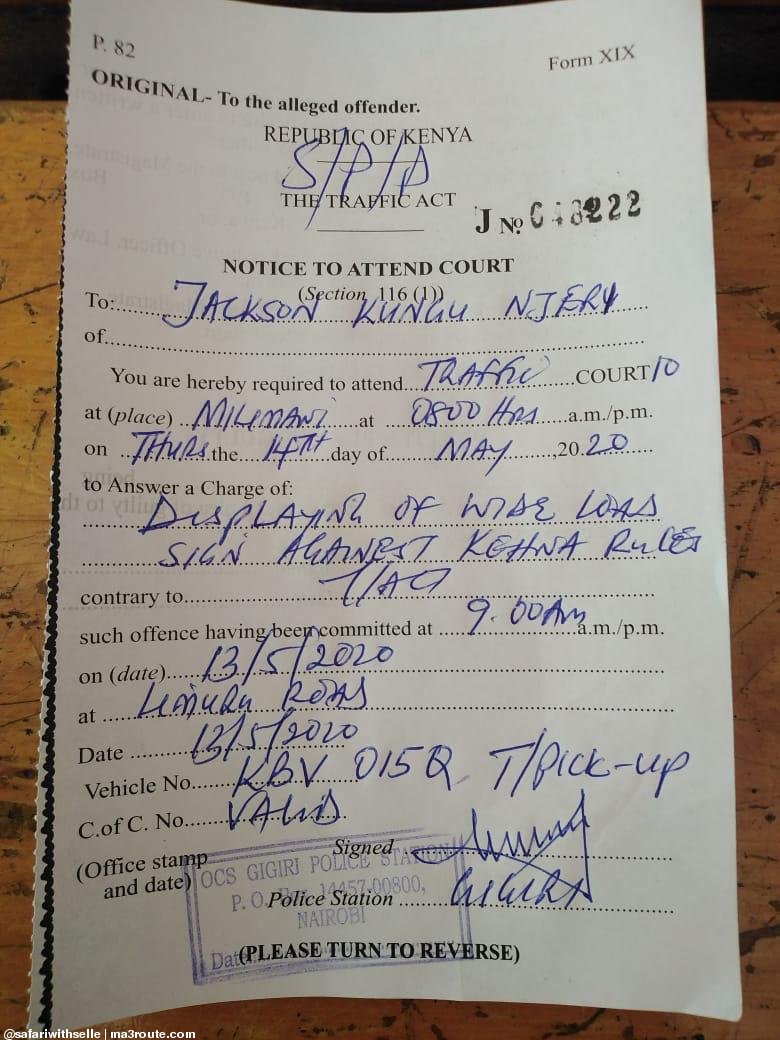 P. 82
Form XIX
ORIGINAL- To the alleged offender.
REPUBLIC OF KENYA
S/P/D
THE TRAFFIC ACT
J No 048222
NOTICE TO ATTEND COURT
(Section 116 (1))
To: JACKSON KUNGU NJERY
of
You are hereby required to attend TRAFFIC COURT 10
at (place) MILIMANI at 0800 HRS a.m./p.m.
on THURS the 14TH day of MAY, 20.20
to Answer a Charge of:
DISPLAYING OF WIDE LOAD
SIGN AGAINEST KEHNA RULES
contrary to T/ACT
such offence having been committed at 9.00Am a.m./p.m.
on (date) 13/5/2020
at LIMURU ROAD
Date 13/5/2020
Vehicle No. KBV 015Q T/PICK-UP
C.of C. No. VALID
Signed
(Office stamp
and date)
OCS GIGIRI POLICE STATION
P. O. Box 14457-00800,
NAIROBI
Date
Police Station GIGIRI
(PLEASE TURN TO REVERSE)
@safariwithselle | ma3route.com